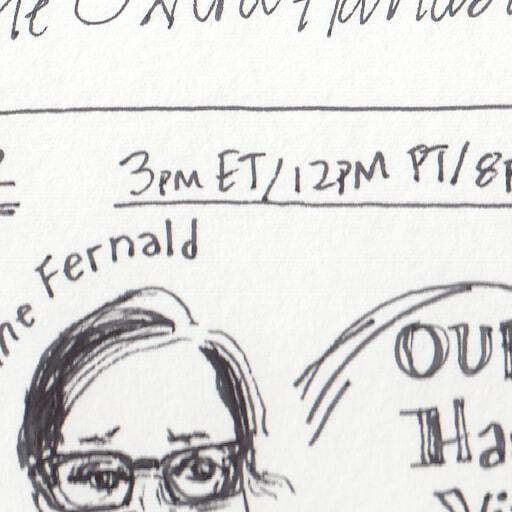 3PM ET/12PM PT/8P
ne Fernald
OUR
Ha
Vi